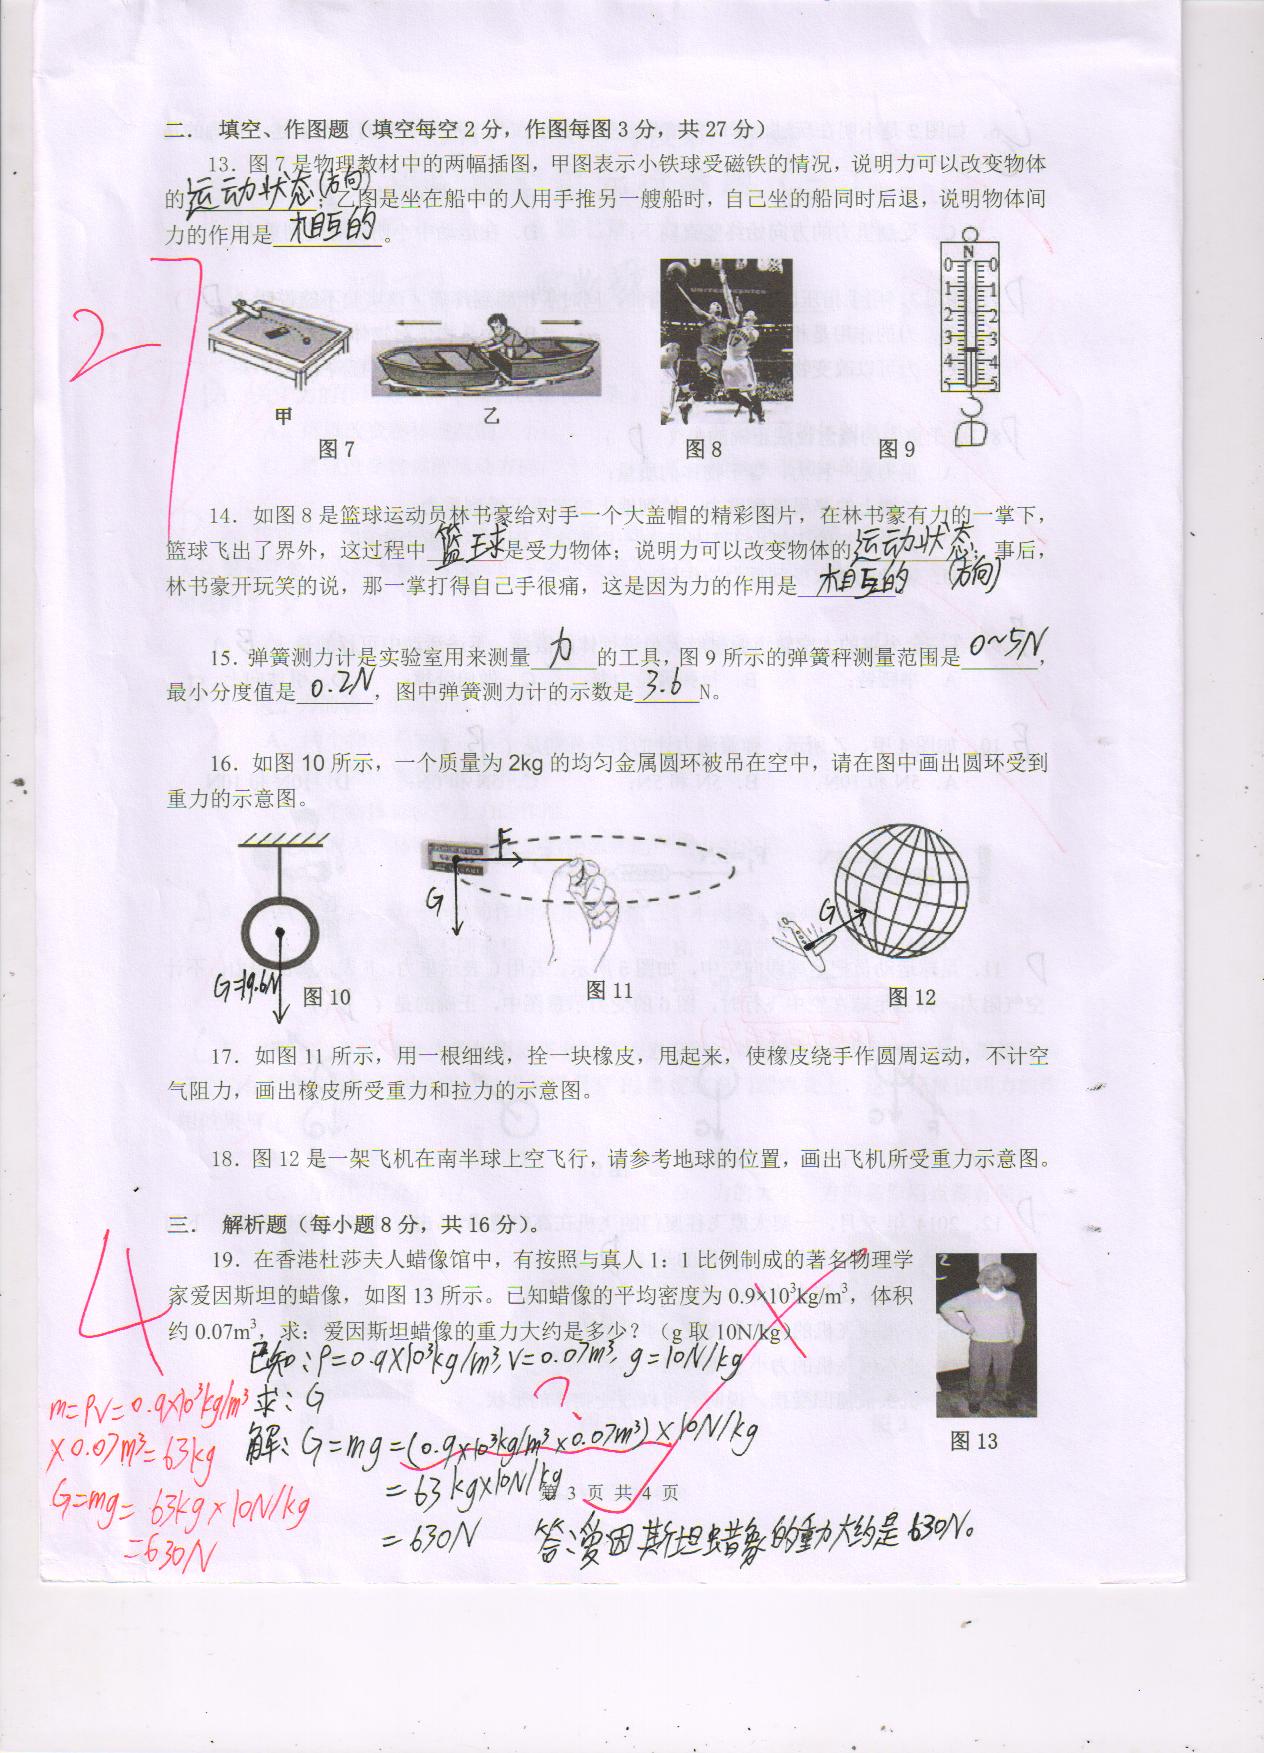 二． 填空、作图题（填空每空 2 分，作图每图 3 分，共 27 分）
13．图 7 是物理教材中的两幅插图，甲图表示小铁球受磁铁的情况，说明力可以改变物体
的运动状态(方向)；乙图是坐在船中的人用手推另一艘船时，自己坐的船同时后退，说明物体间
力的作用是相互的。
27
甲
乙
图 7
图 8
N
0 0
1 1
2 2
3 3
4 4
5 5
图 9
14．如图 8 是篮球运动员林书豪给对手一个大盖帽的精彩图片，在林书豪有力的一掌下，
篮球飞出了界外，这过程中篮球是受力物体；说明力可以改变物体的运动状态(方向)；事后，
林书豪开玩笑的说，那一掌打得自己手很痛，这是因为力的作用是相互的
15．弹簧测力计是实验室用来测量力的工具，图 9 所示的弹簧秤测量范围是0~5N，
最小分度值是0.2N，图中弹簧测力计的示数是3.6N。
16．如图 10 所示，一个质量为 2kg 的均匀金属圆环被吊在空中，请在图中画出圆环受到
重力的示意图。
G=19.6N
图 10
F
G
图 11
G
图 12
17．如图 11 所示，用一根细线，拴一块橡皮，甩起来，使橡皮绕手作圆周运动，不计空
气阻力，画出橡皮所受重力和拉力的示意图。
18．图 12 是一架飞机在南半球上空飞行，请参考地球的位置，画出飞机所受重力示意图。
三． 解析题（每小题 8 分，共 16 分）。
4
19．在香港杜莎夫人蜡像馆中，有按照与真人 1：1 比例制成的著名物理学
家爱因斯坦的蜡像，如图 13 所示。已知蜡像的平均密度为 0.9×10³kg/m³，体积
约 0.07m³，求：爱因斯坦蜡像的重力大约是多少？（g 取 10N/kg）
已知：ρ=0.9×10³kg/m³, V=0.07m³, g=10N/kg
求：G
?
解：G=mg=(0.9×10³kg/m³×0.07m³)×10N/kg
=63kg×10N/kg
=630N
答：爱因斯坦蜡象的重力大约是630N。
m=ρV=0.9×10³kg/m³
×0.07m³=63kg
G=mg=63kg×10N/kg
=630N
图 13
第 3 页 共 4 页